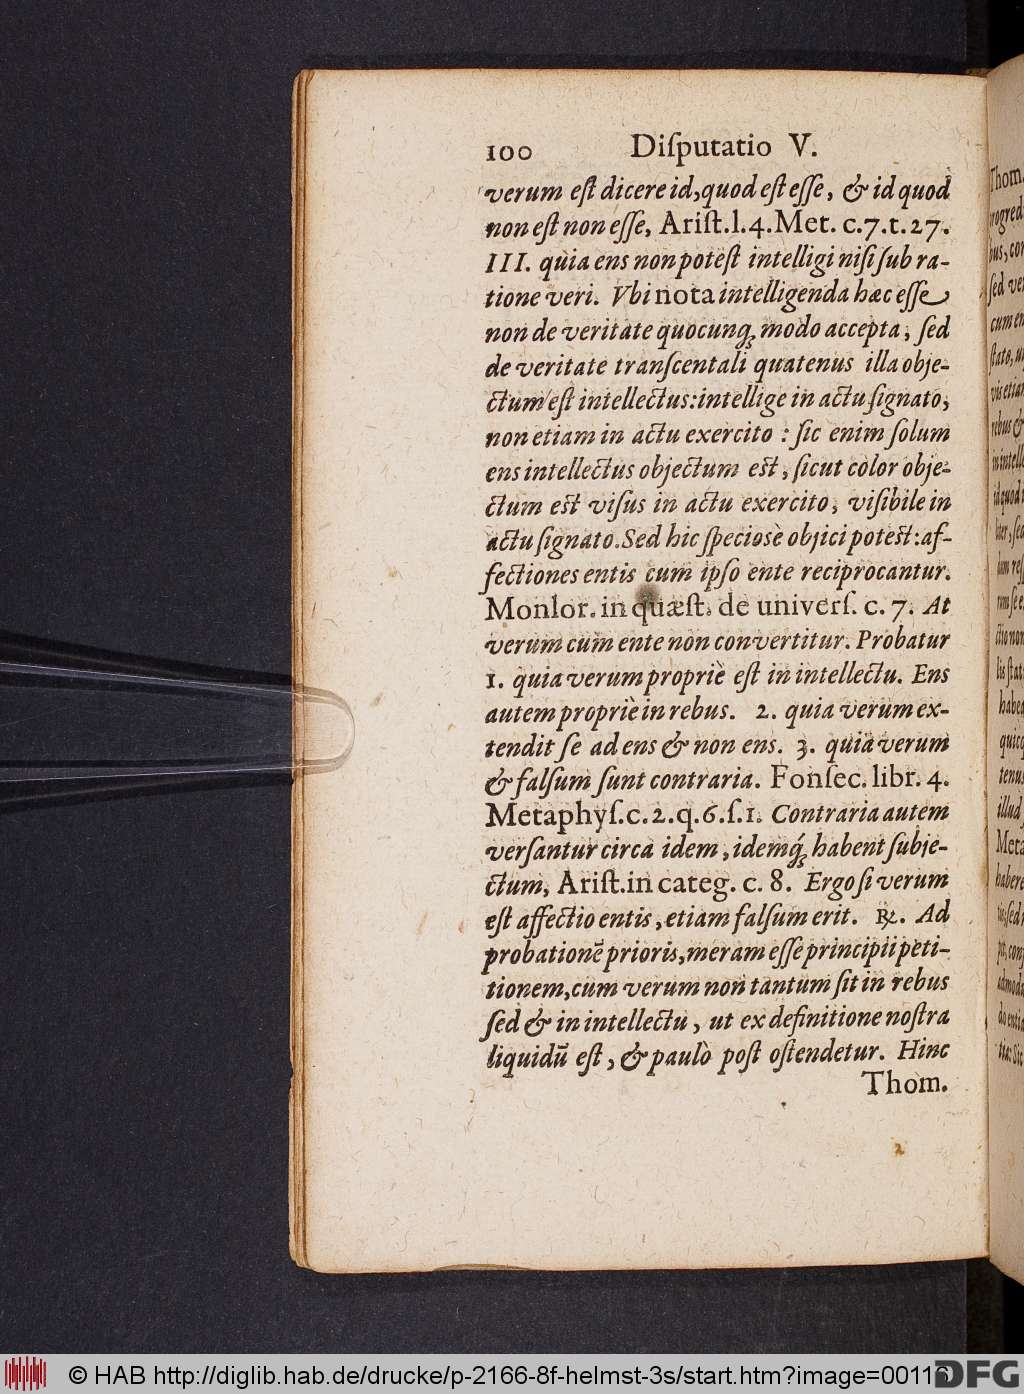 100 Diſputatio V.
verum eſt dicere id, quod eſt eſſe, & id quod
non eſt non eſſe, Ariſt.l.4.Met. c.7.t.27.
III. quia ens non poteſt intelligi niſi ſub ra-
tione veri. Vbi nota intelligenda hæc eſſe
non de veritate quocunq; modo accepta, ſed
de veritate tranſcentali quatenus illa obje-
ctum eſt intellectus: intellige in actu ſignato,
non etiam in actu exercito : ſic enim ſolum
ens intellectus objectum eſt, ſicut color obje-
ctum eſt viſus in actu exercito, viſibile in
actu ſignato. Sed hic ſpeciosè objici poteſt: af-
fectiones entis cum ipſo ente reciprocantur.
Monlor. in quæſt. de univerſ. c. 7. At
verum cum ente non convertitur. Probatur
1. quia verum propriè eſt in intellectu. Ens
autem propriè in rebus. 2. quia verum ex-
tendit ſe ad ens & non ens. 3. quia verum
& falſum ſunt contraria. Fonſec. libr. 4.
Metaphyſ.c.2.q.6.ſ.1. Contraria autem
verſantur circa idem, idemq́; habent ſubje-
ctum, Ariſt.in categ. c. 8. Ergo ſi verum
eſt affectio entis, etiam falſum erit. ℞. Ad
probationẽ prioris, meram eſſe principii peti-
tionem, cum verum non tantum ſit in rebus
ſed & in intellectu, ut ex definitione noſtra
liquidũ eſt, & paulò poſt oſtendetur. Hinc
Thom.
© HAB http://diglib.hab.de/drucke/p-2166-8f-helmst-3s/start.htm?image=00116
DFG